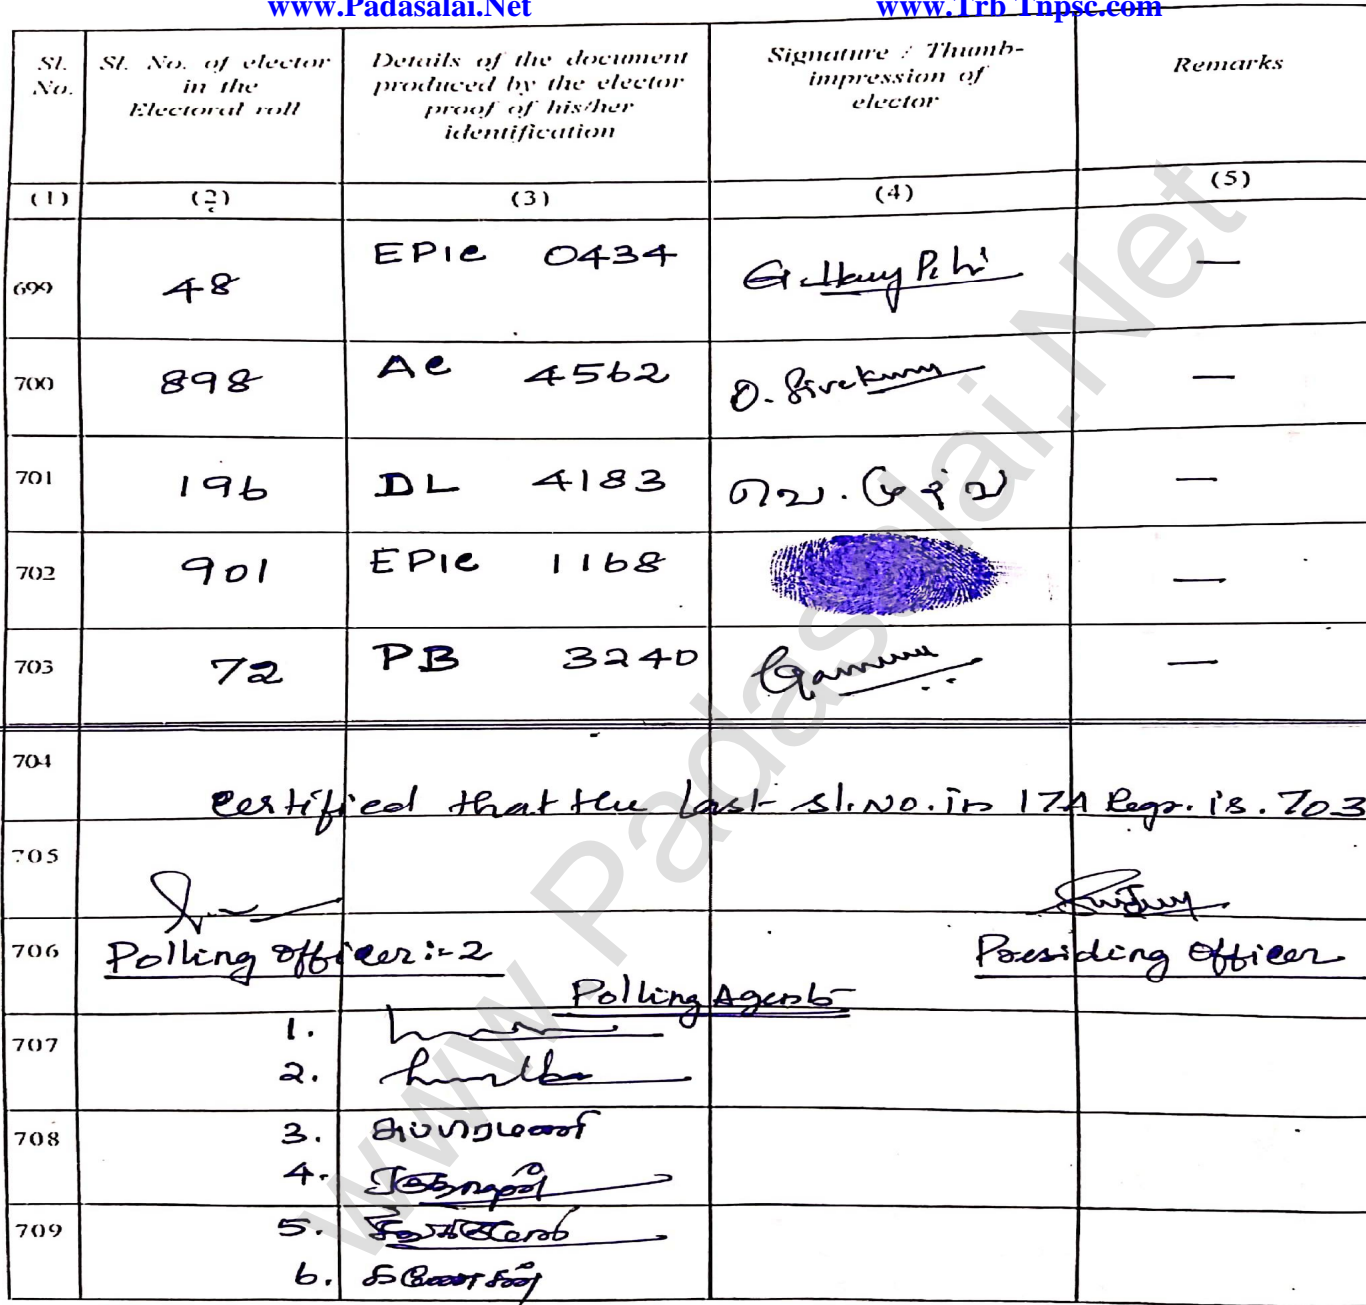 www.Padasalai.Net www.Trb Tnpsc.com
Sl. No. Sl. No. of elector in the Electoral roll Details of the document produced by the elector proof of his/her identification Signature / Thumb-impression of elector Remarks
(1) (2) (3) (4) (5)
699 48 EPIC 0434 —
700 898 AC 4562 —
701 196 DL 4183 —
702 901 EPIC 1168 —
703 72 PB 3240 —
704
Certified that the last sl.No. in 17A Regr. is. 703
705
706 Polling officer:-2 Presiding Officer
Polling Agents
707 1.
2.
708 3. சுப்ரமணி
4.
709 5.
6.
www.Padasalai.Net